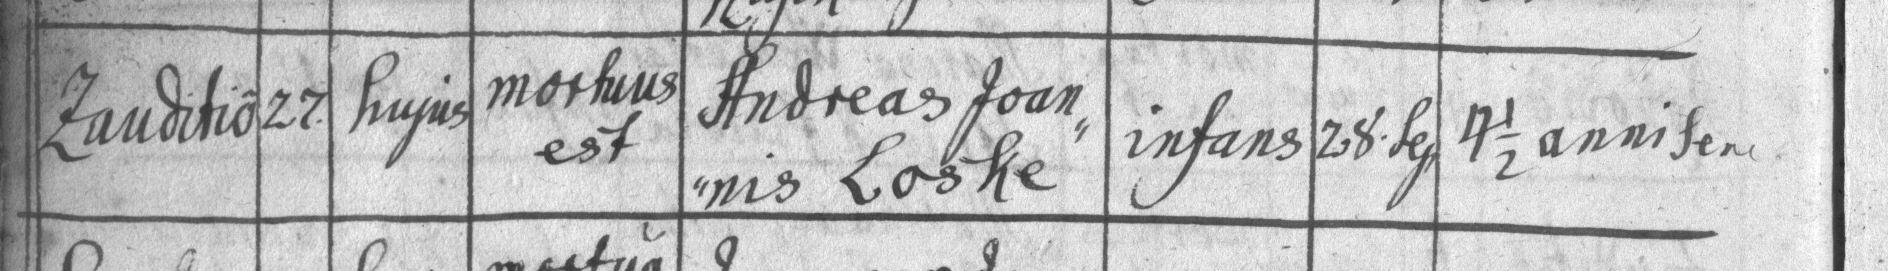 Zauditiõ 27. hujus mortuus est Andreas Joan„ „nis Loske infans 28. Sep. 4 1/2 anni sem